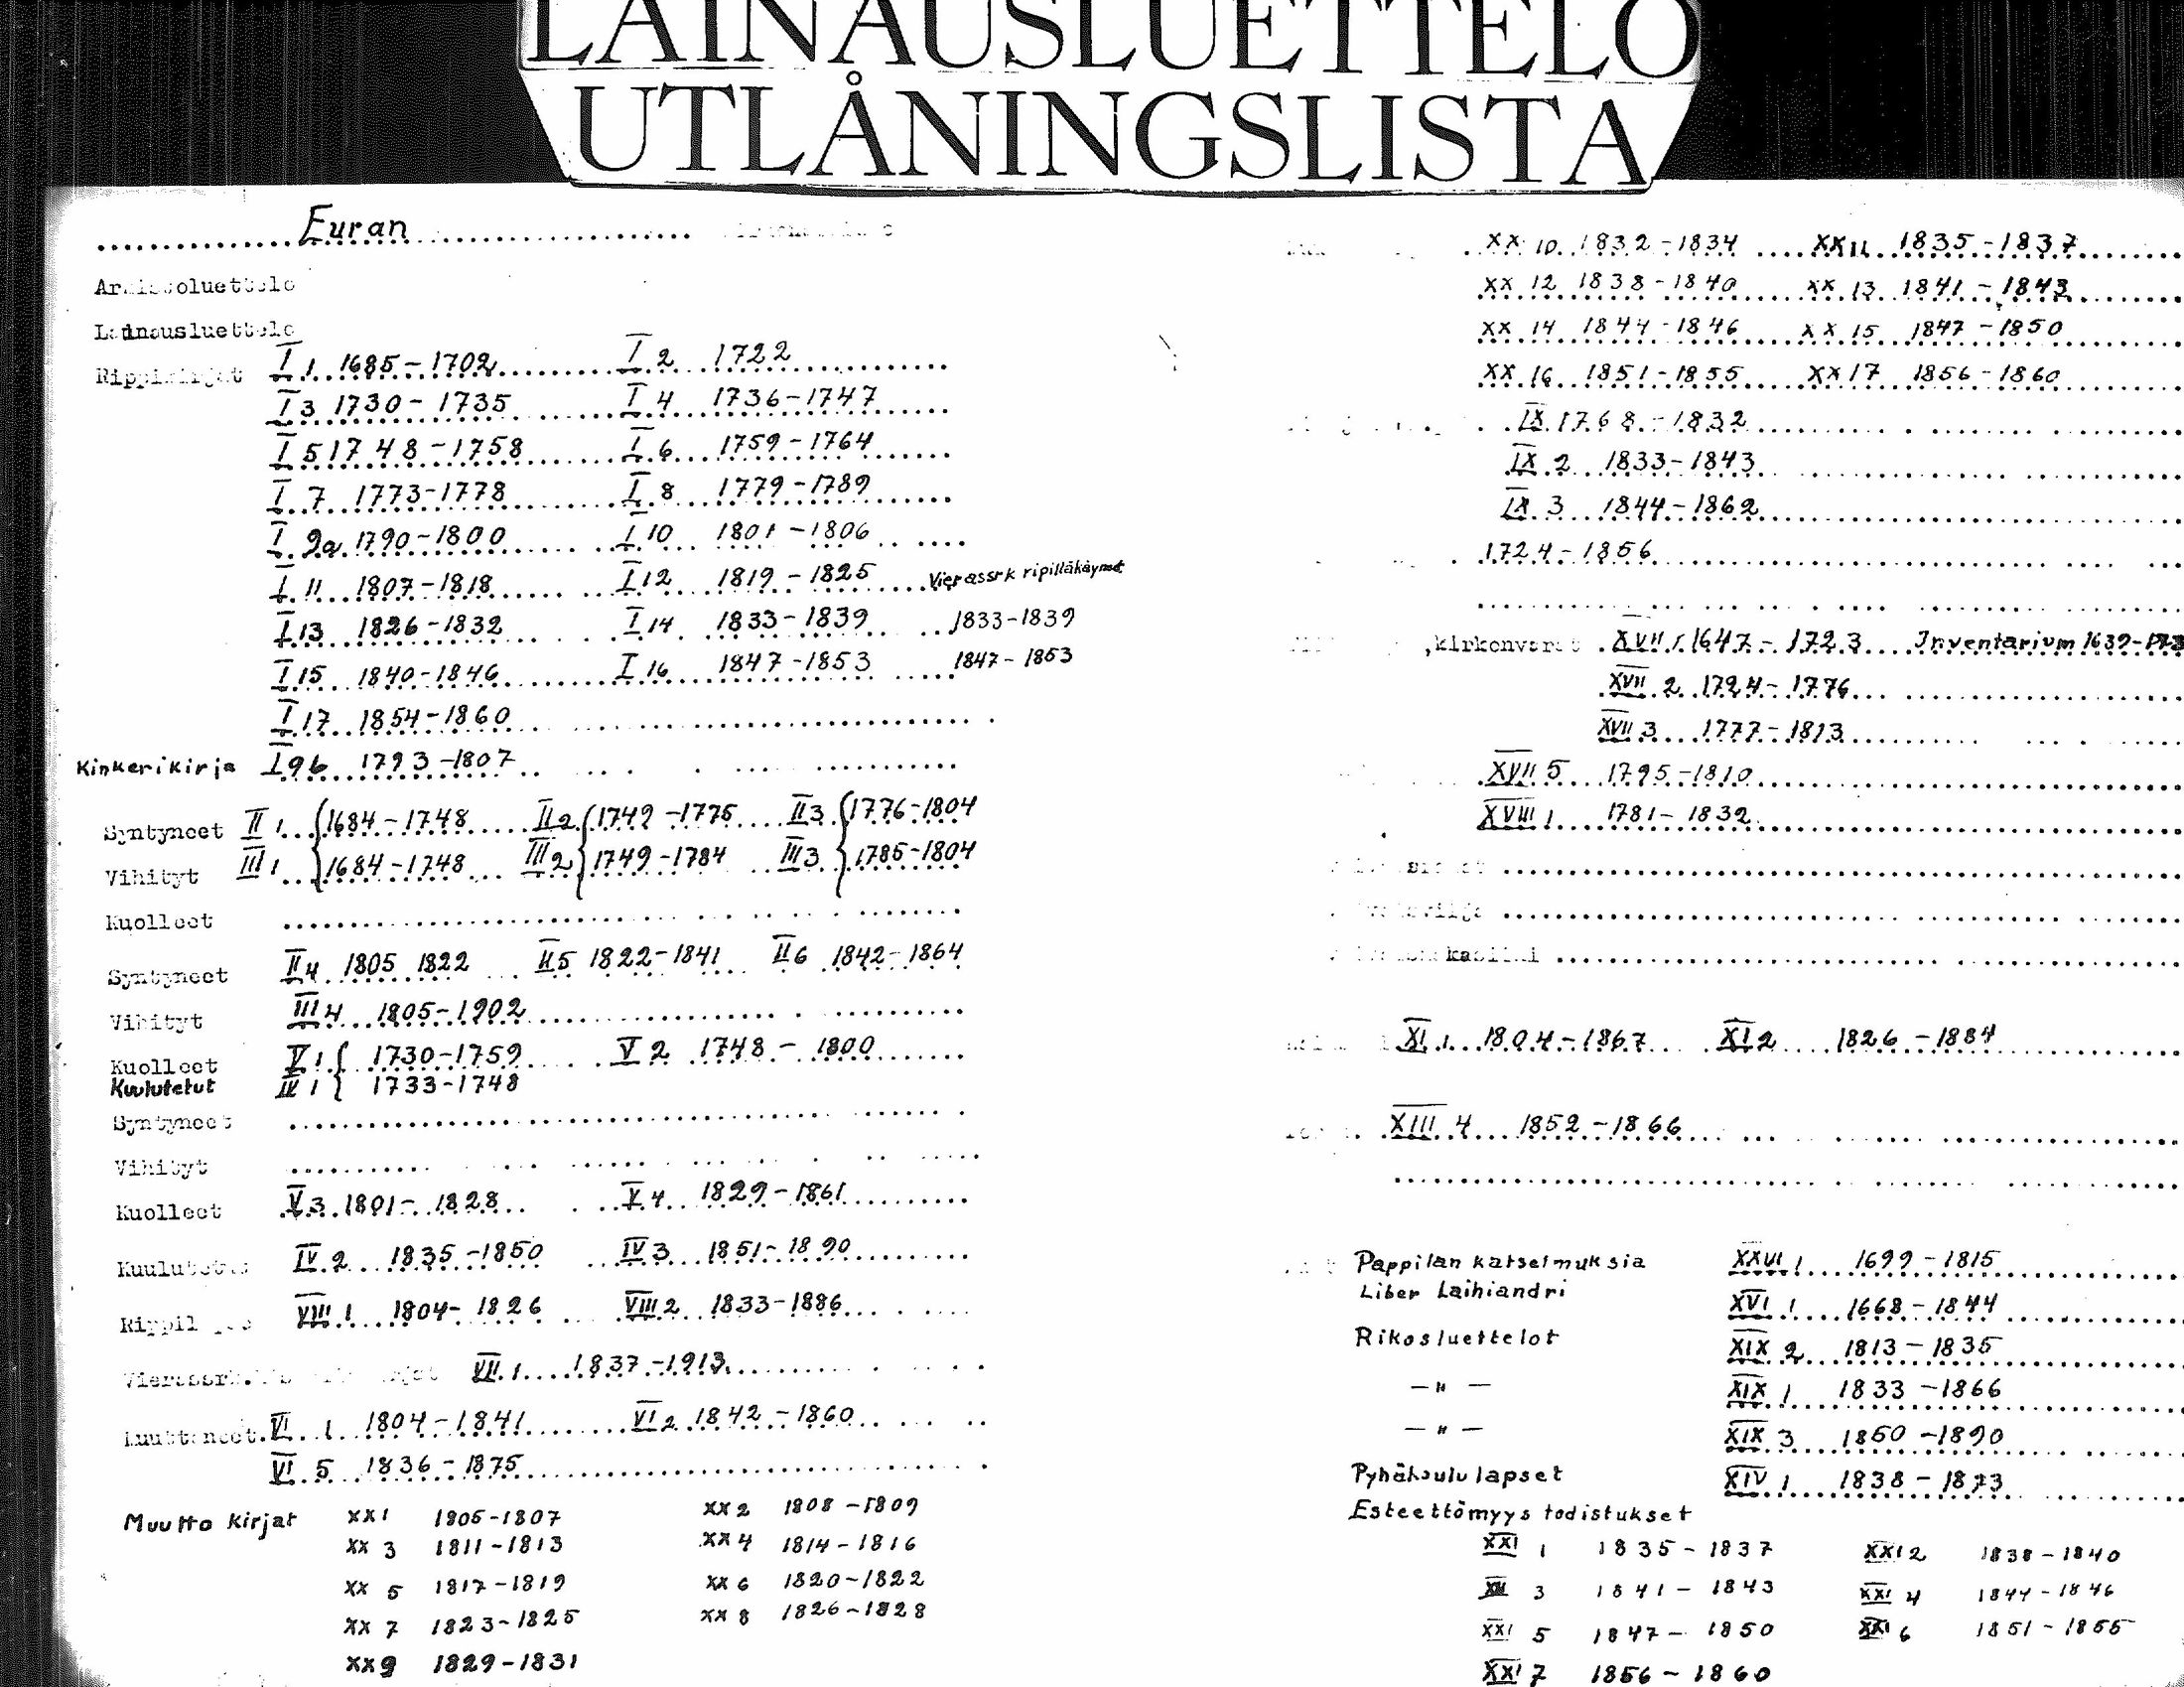 LAINAUSLUETTELO
UTLÅNINGSLISTA
Euran
Arkistoluettelo
Lainausluettelo
Rippikirjat I 1 1685-1702 I 2 1722
I 3 1730-1735 I 4 1736-1747
I 5 1748-1758 I 6 1759-1764
I 7 1773-1778 I 8 1779-1789
I 9a 1790-1800 I 10 1801-1806
I 11 1807-1818 I 12 1819-1825 Vierassrk ripilläkäyneet
I 13 1826-1832 I 14 1833-1839 1833-1839
I 15 1840-1846 I 16 1847-1853 1847-1853
I 17 1854-1860
Kinkerikirja I 9b 1793-1807
Syntyneet II 1 1684-1748 II 2 1749-1775 II 3 1776-1804
Vihityt III 1 1684-1748 III 2 1749-1784 III 3 1785-1804
Kuolleet
Syntyneet II 4 1805 1822 II 5 1822-1841 II 6 1842-1864
Vihityt III 4 1805-1902
Kuolleet V 1 1730-1759 V 2 1748-1800
Kuulutetut IV 1 1733-1748
Syntyneet
Vihityt
Kuolleet V 3 1801-1828 V 4 1829-1861
Kuulutetut IV 2 1835-1850 IV 3 1851-1890
VIII 1 1804-1826 VIII 2 1833-1886
VII 1 1837-1913
Muuttaneet VI 1 1804-1841 VI 2 1842-1860
VI 5 1836-1875
Muutto kirjat XX 1 1805-1807 XX 2 1808-1809
XX 3 1811-1813 XX 4 1814-1816
XX 5 1817-1819 XX 6 1820-1822
XX 7 1823-1825 XX 8 1826-1828
XX 9 1829-1831
XX 10 1832-1834 XX 11 1835-1837
XX 12 1838-1840 XX 13 1841-1843
XX 14 1844-1846 XX 15 1847-1850
XX 16 1851-1855 XX 17 1856-1860
IX 1768-1832
IX 2 1833-1843
IX 3 1844-1862
1724-1856
,kirkonvarat XVII 1 1647-1723 Inventarium 1639-173
XVII 2 1724-1776
XVII 3 1777-1813
XVII 5 1795-1810
XVIII 1 1781-1832
XI 1 1804-1867 XI 2 1826-1884
XIII 4 1852-1866
Pappilan katselmuksia XXVI 1 1699-1815
Liber Laihiandri XVI 1 1668-1844
Rikosluettelot XIX 2 1813-1835
-"- XIX 1 1833-1866
-"- XIX 3 1850-1890
Pyhäkoulu lapset XIV 1 1838-1873
Esteettömyys todistukset
XXI 1 1835-1837 XXI 2 1838-1840
XXI 3 1841-1843 XXI 4 1844-1846
XXI 5 1847-1850 XXI 6 1851-1855
XXI 7 1856-1860